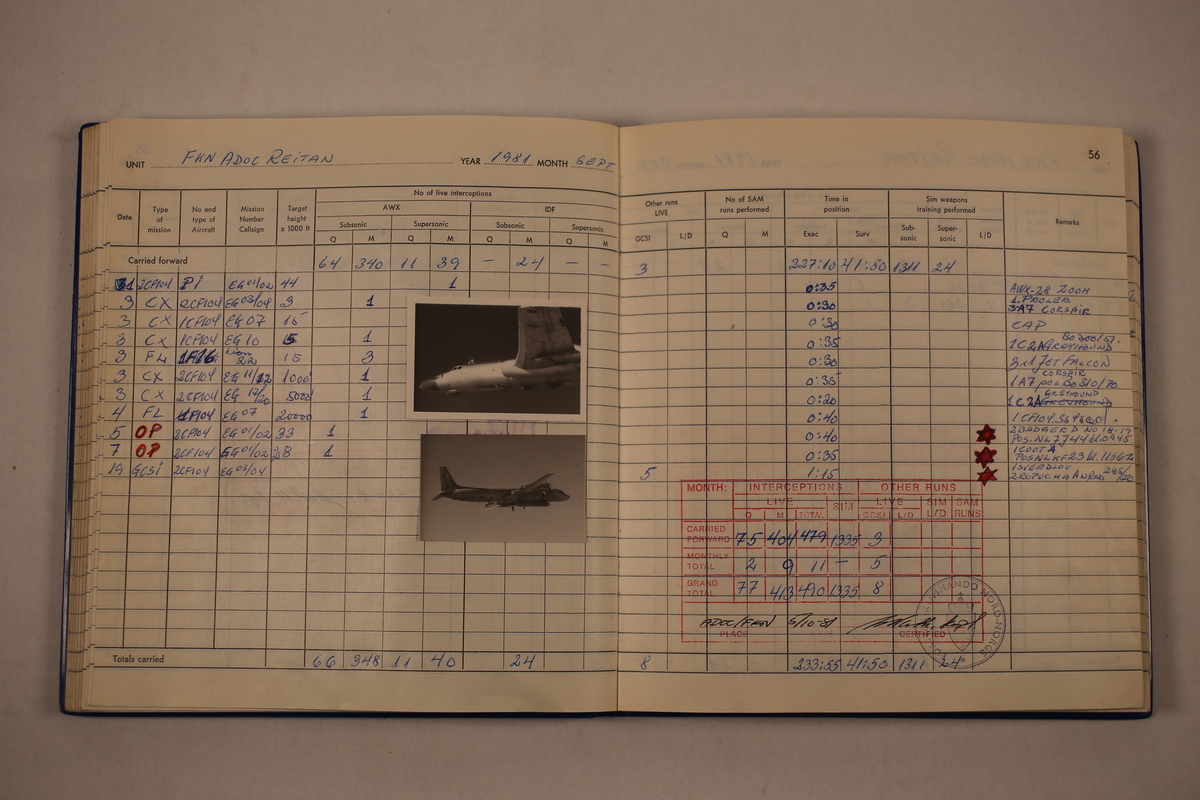 UNIT FKN ADOC REITAN YEAR 1981 MONTH SEPT
56
No of live interceptions
AWX IDF
Subsonic Supersonic Subsonic Supersonic
Date Type of mission No and type of Aircraft Mission Number Callsign Target height x 1000 ft Q M Q M Q M Q M
Other runs LIVE No of SAM runs performed Time in position Sim weapons training performed Remarks
GCSI L/D Q M Exec Surv Sub-sonic Super-sonic L/D
Carried forward 64 340 11 39 — 24 — — 3 227:10 41:50 1311 24
1 2CF104 PI EG 01/02 44 1 0:35 AWX-28 ZOOM
3 CX 2CF104 EG 03/04 3 1 0:30 1. PROLER
3A7 CORSAIR
3 CX 1CF104 EG 07 15 0:30 CAP
3 CX 1CF104 EG 10 5 1 0:35 1C2A GREYHOUND
3 FL 1F16 15 3 0:30 3x1 JET FALCON
3 CX 2CF104 EG 11/12 1000 1 0:35 CORSAIR
1A7
3 CX 2CF104 EG 5000 1 0:20 GREYHOUND
1C2A GREYHOUND
4 FL 1F104 EG 07 20000 1 0:40 1CF104
5 OP 2CF104 EG 01/02 33 1 0:40 2BADGER D NO 18-19
POS. NL 7744
7 OP 2CF104 EG 01/02 28 1 0:35 1COOT A
POS NLKF23
19 GCSI 2CF104 EG 03/04 5 1:15 1SVERDLOV
2ROPUCHA
MONTH: INTERCEPTIONS OTHER RUNS
LIVE SIM LIVE SIM L/D SAM RUNS
Q M TOTAL GCSI L/D
CARRIED FORWARD 75 404 479 1335 3
MONTHLY TOTAL 2 9 11 — 5
GRAND TOTAL 77 413 490 1335 8
ADOC/FKN 5/10-81
PLACE CERTIFIED
NORD-NORGE
Totals carried 66 348 11 40 24 8 233:55 41:50 1311 24